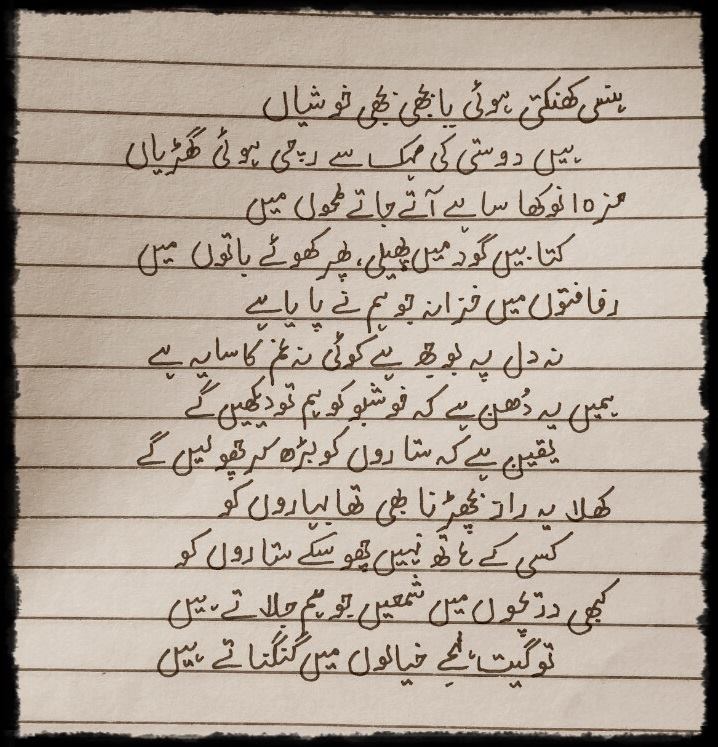 ہنسی کھنکتی ہوئی یا بجھی بجھی خوشیاں
ہیں دوستی کی مہک سے رچی ہوئی گھڑیاں
مزہ انوکھا سا ہے آتے جاتے ٹھولوں میں
کتابیں گود میں پھیلی، پھر کھوئے باتوں میں
رفاقتوں میں خزانہ جو ہم نے پایا ہے
نہ دل پہ بوجھ ہے کوئی نہ غم کا سایہ ہے
ہمیں یہ دُھن ہے کہ خوشبو کو ہم تو دیکھیں گے
یقین ہے کہ ستاروں کو بڑھ کر چھو لیں گے
کھلا یہ راز بچھڑنا بھی تھا بہاروں کو
کسی کے ہاتھ نہیں چھو سکے ستاروں کو
کبھی دریچوں میں شمعیں جو ہم جلاتے ہیں
تو گیت، لمحے خیالوں میں گنگناتے ہیں